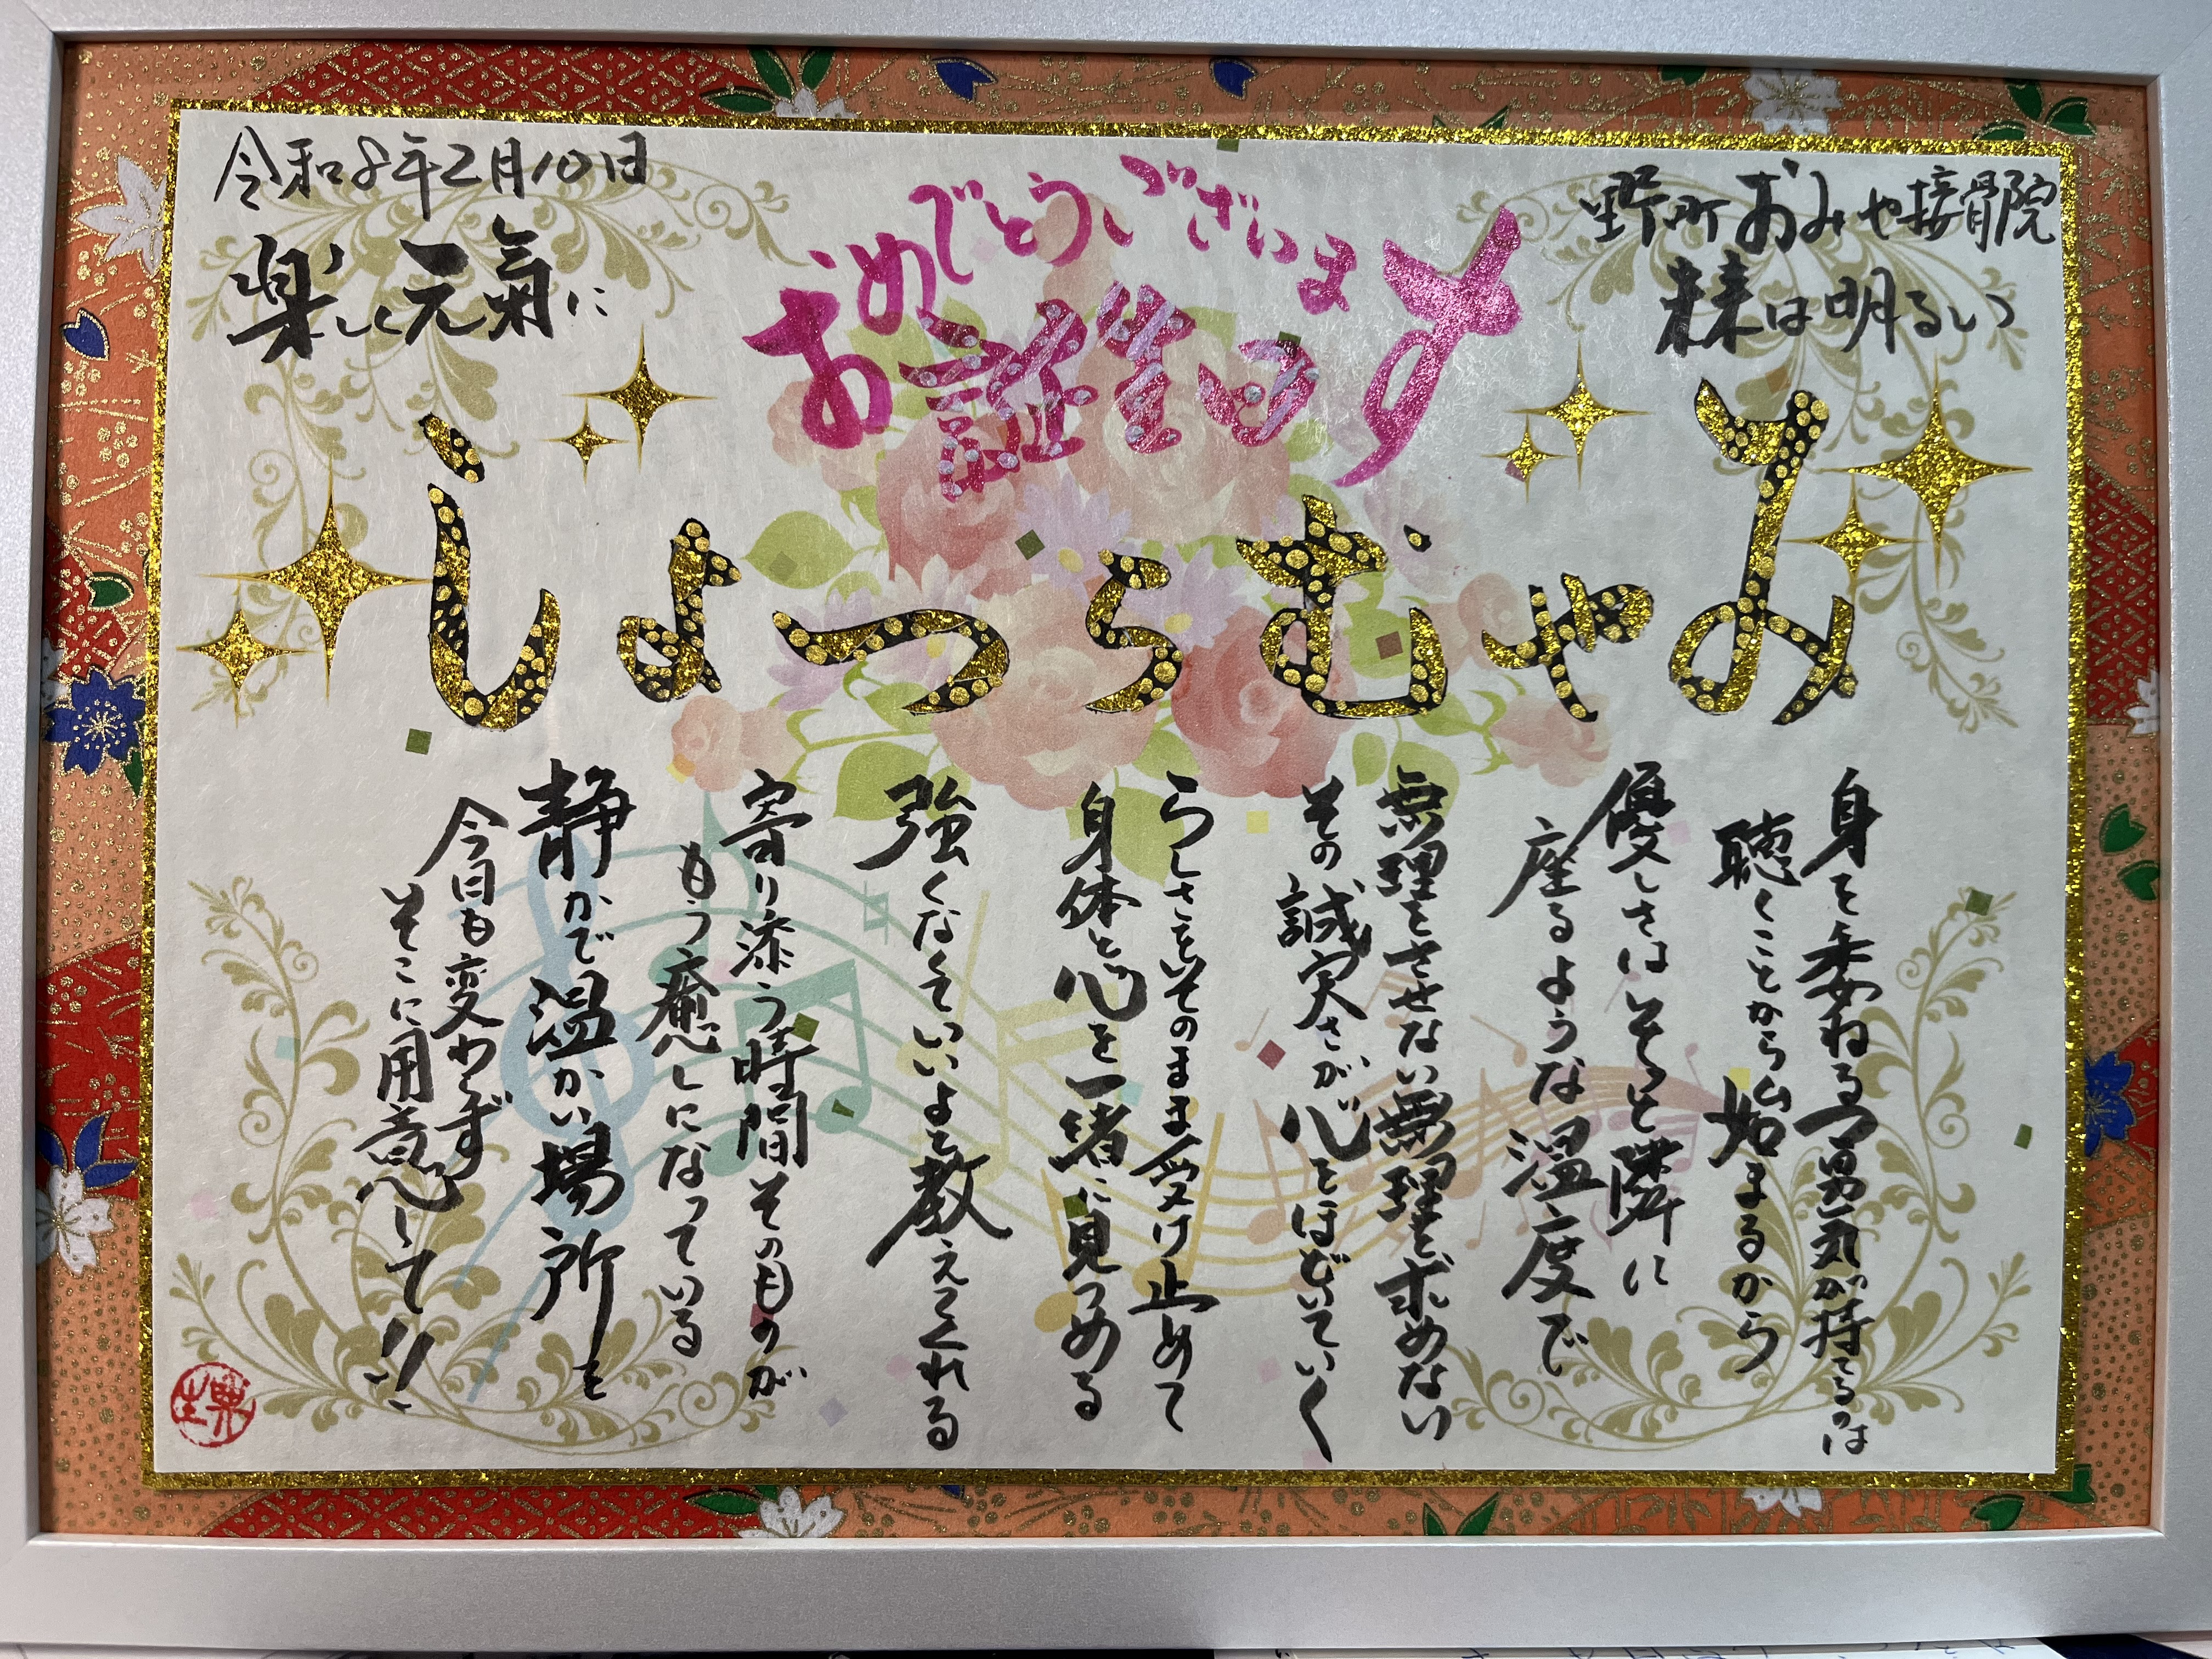 おみや接骨院
未来は明るい
お誕生日
おめでとうございます
令和8年2月10日
楽しく元氣に
みやむらつよし
身を委ねる勇気が持てるのは
聴くことから始まるから
優しさはそっと隣に
座るような温度で
無理をさせない無理を求めない
その誠実さが心をほどいていく
らしさをそのまま受け止めて
身体と心を一緒に見つめる
強くなくていいよと教えてくれる
寄り添う時間そのものが
もう癒しになっている
静かで温かい場所を
今日も変わらず
そこに用意して!!